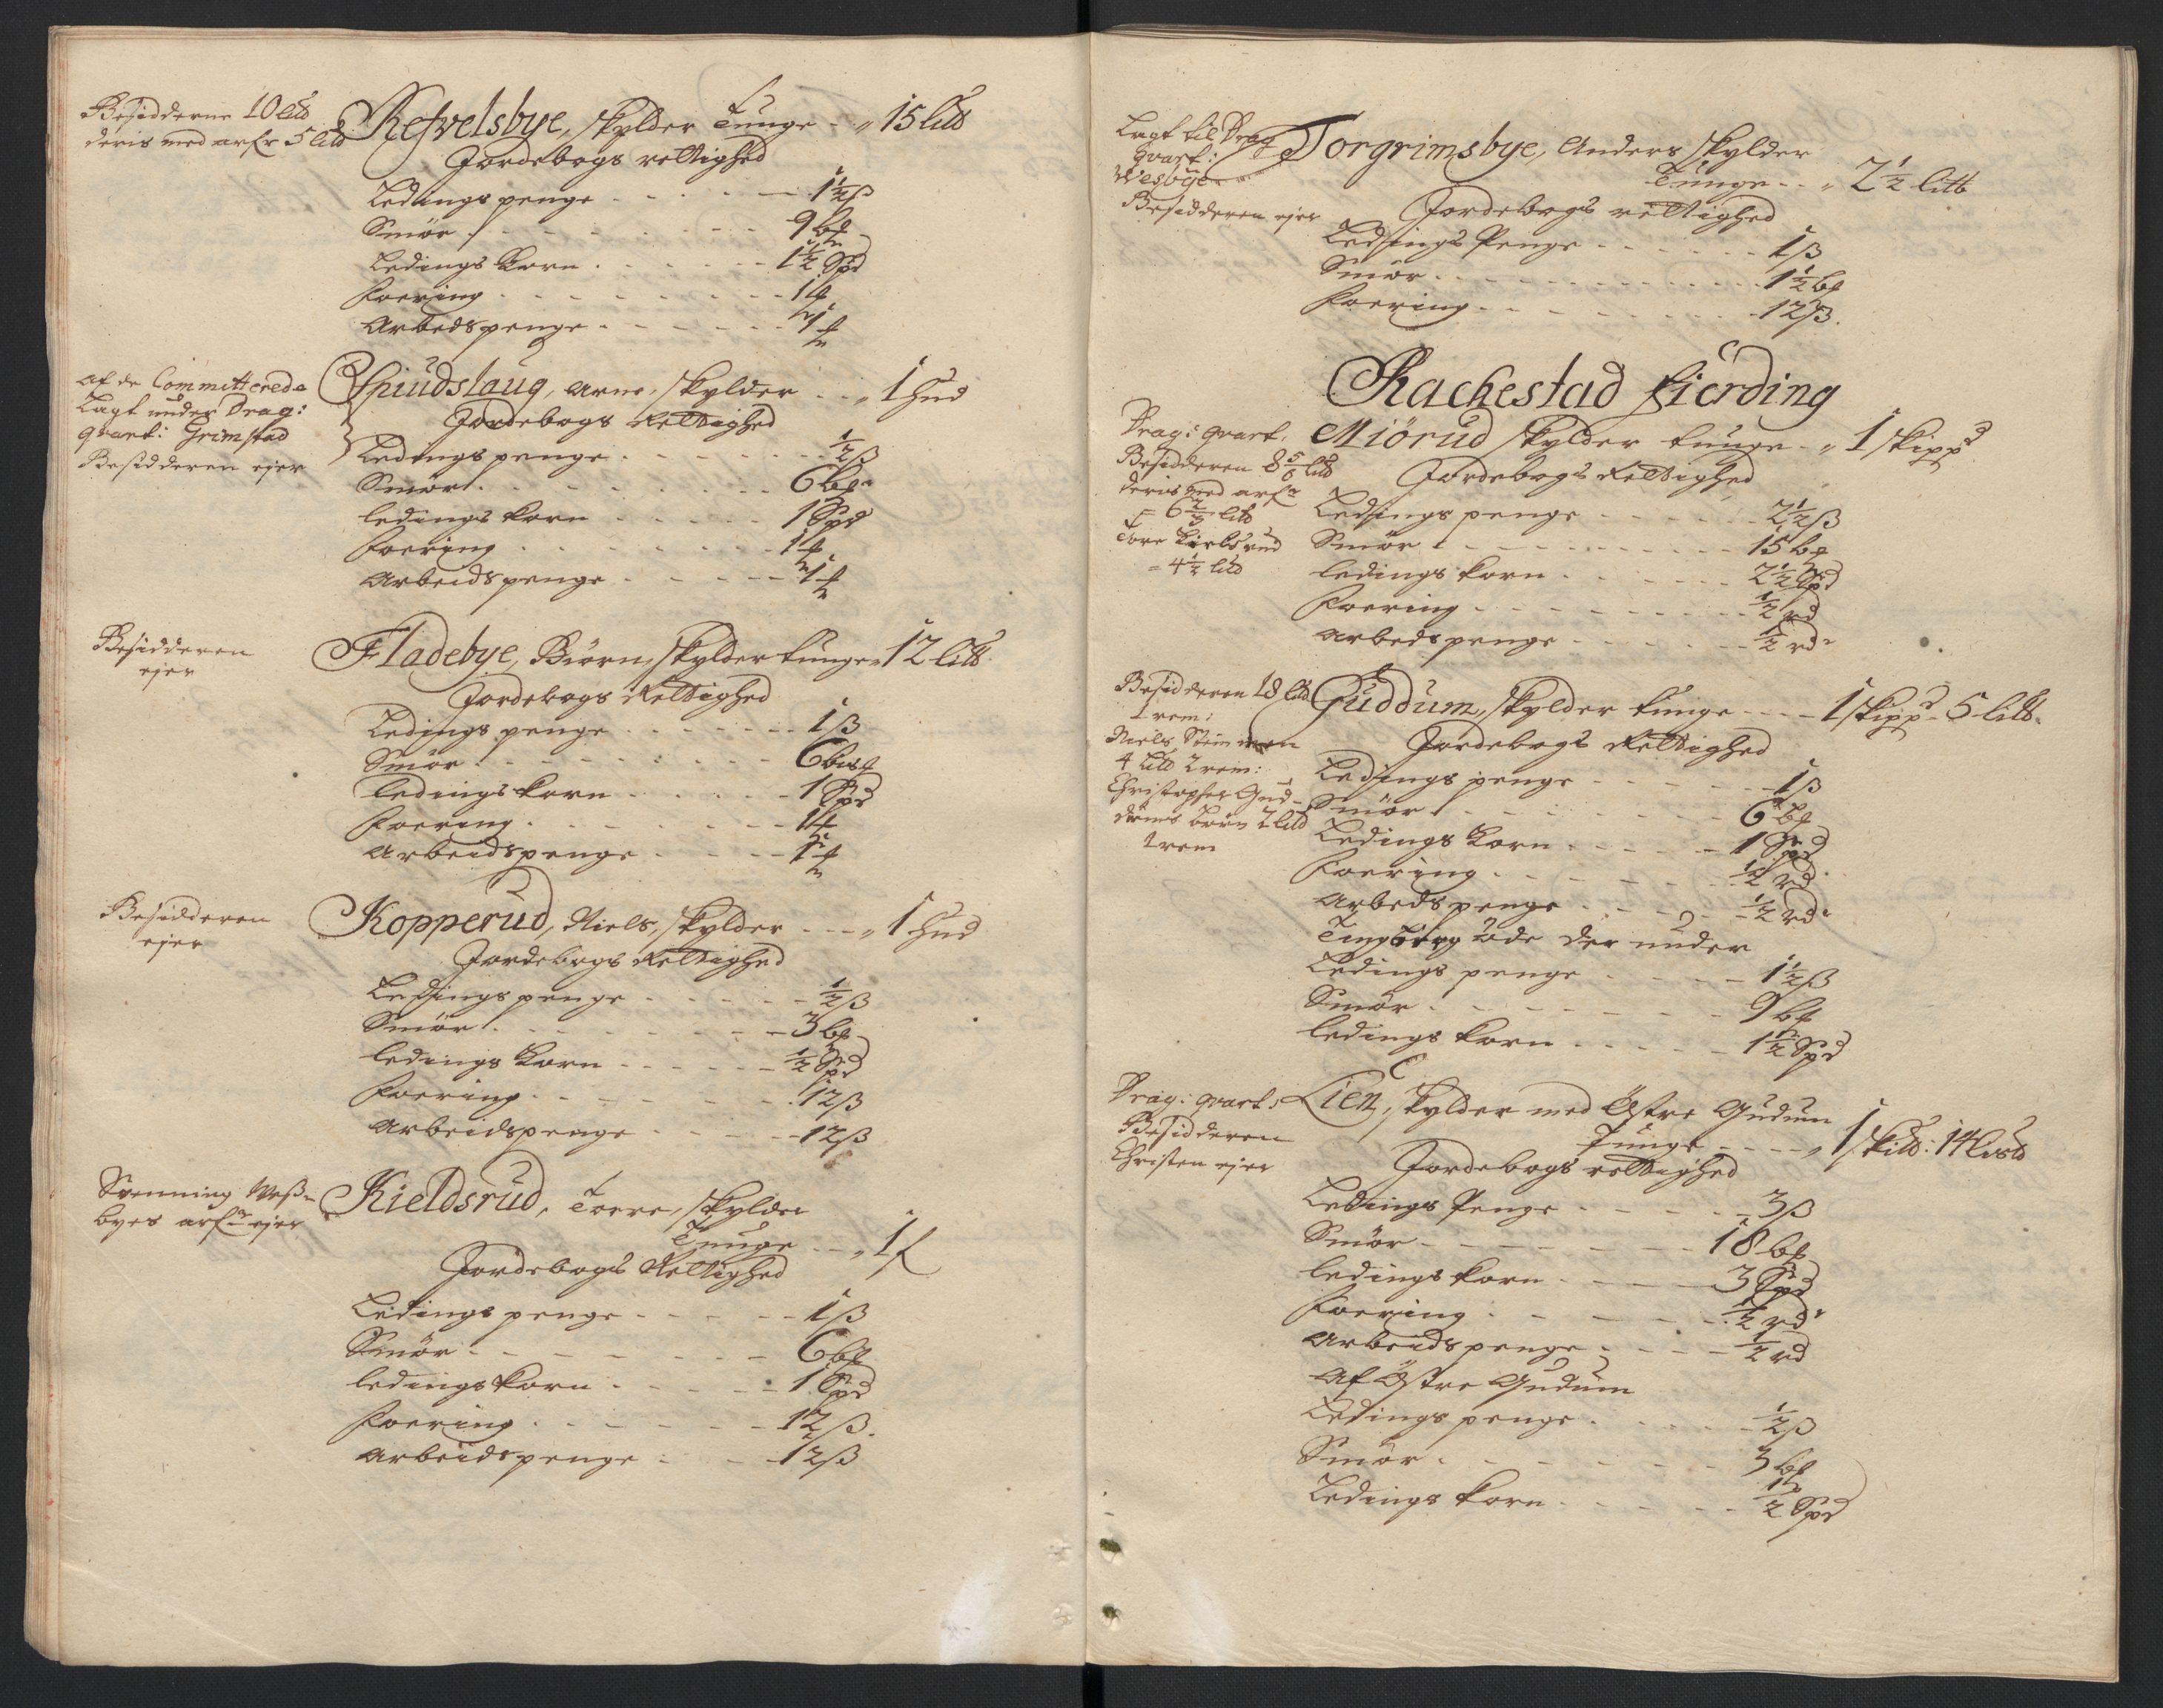 Besidderne 10 litd
deris med arfr 5 litd
Refvelsbye, skylder Tunge - " 15 litd
Jordebogs rettighed
Ledings penge - 1½ ß
Smør - 9 bꝑ
Ledings Korn - 1½ Spd
Foering - 1 ꝑ
Arbedspenge - 1 ꝑ
Af de Committerede
Lagt under Drag:
qvart: Grimstad
Besidderen ejer
Spiudslaug, Arne, skylder - " 1 hud
Jordebogs Rettighed
Ledings penge - ½ ß
Smør - 6 bꝑ
ledings korn - 1 Spd
Foering - 1 ꝑ
Arbeidspenge - 1 ꝑ
Besidderen
ejer
Fladebye, Biørn, skylder tunge " 12 litb
Jordebogs Rettighed
Ledings penge - 1 ß
Smør - 6 bisꝑ
Ledings korn - 1 Spd
Foering - 1 ꝑ
Arbeidspenge - 1 ꝑ
Besidderen
ejer
Kopperud, Niels, skylder - " 1 hud
Jordebogs Rettighed
Ledings penge - ½ ß
Smør - 3 bꝑ
ledings Korn - ½ Spd
Foering - 12 ß
Arbeidspenge - 12 ß
Svenning Weß-
byes arfr ejer
Kieldsrud, Tore, skylder
Tunge - " 1 f
Jordebogs Rettighed
Ledings penge - 1 ß
Smør - 6 bꝑ
ledings korn - 1 Spd
Foering - 12 ß.
Arbeidspenge - 12 ß
Lagt til Drag
qvart:
Wesbye
Besidderen ejer
Torgrimsbye, Anders skylder
Tunge - " 2½ litb
Jordebogs rettighed
Ledings Penge - 1 ß
Smør - 1½ bꝑ
Foering - 12 ß.
Rachestad fierding
Drag: qvart.
Besidderen 8 5/6 litd
deris med arfr
= 6 2/3 litd
Tore Kielsrud
= 4½ litd
Miörud skylder tunge - " 1 skippd
Jordebogs Rettighed
Ledings penge - 2½ ß
Smør - 15 bꝑ
ledings korn - 2½ Spd
Foering - ½ rd
Arbedspenge - ½ rd
Besidderen 18 litd
1 rem:
Niels
4 litd 2 rem:
Christopher Gud-
dums børn 2 litd
1 rem
Guddum, skylder tunge - 1 skippd 5 litb
Jordebogs Rettighed
Ledings penge - 1 ß
Smør - 6 bꝑ
Ledings Korn - 1 Spd
Foering - ½ rd
Arbedspenge - ½ rd
Tingbierg øde der under
Ledings penge - 1½ ß
Smør - 9 bꝑ
ledings korn - 1½ Spd
Drag: qvart:
Besidderen
Christen ejer
Lien, skylder med Østre Gudum
Tunge - " 1 skitb: 14 lisb
Jordebogs rettighed
Ledings Penge - 3 ß
Smør - 18 bꝑ
ledings korn - 3 Spd
Foering - ½ rd
Arbeidspenge - ½ rd
Af Østre Gudum
Ledings penge - ½ ß
Smør - 3 bꝑ
Ledings korn - ½ Spd